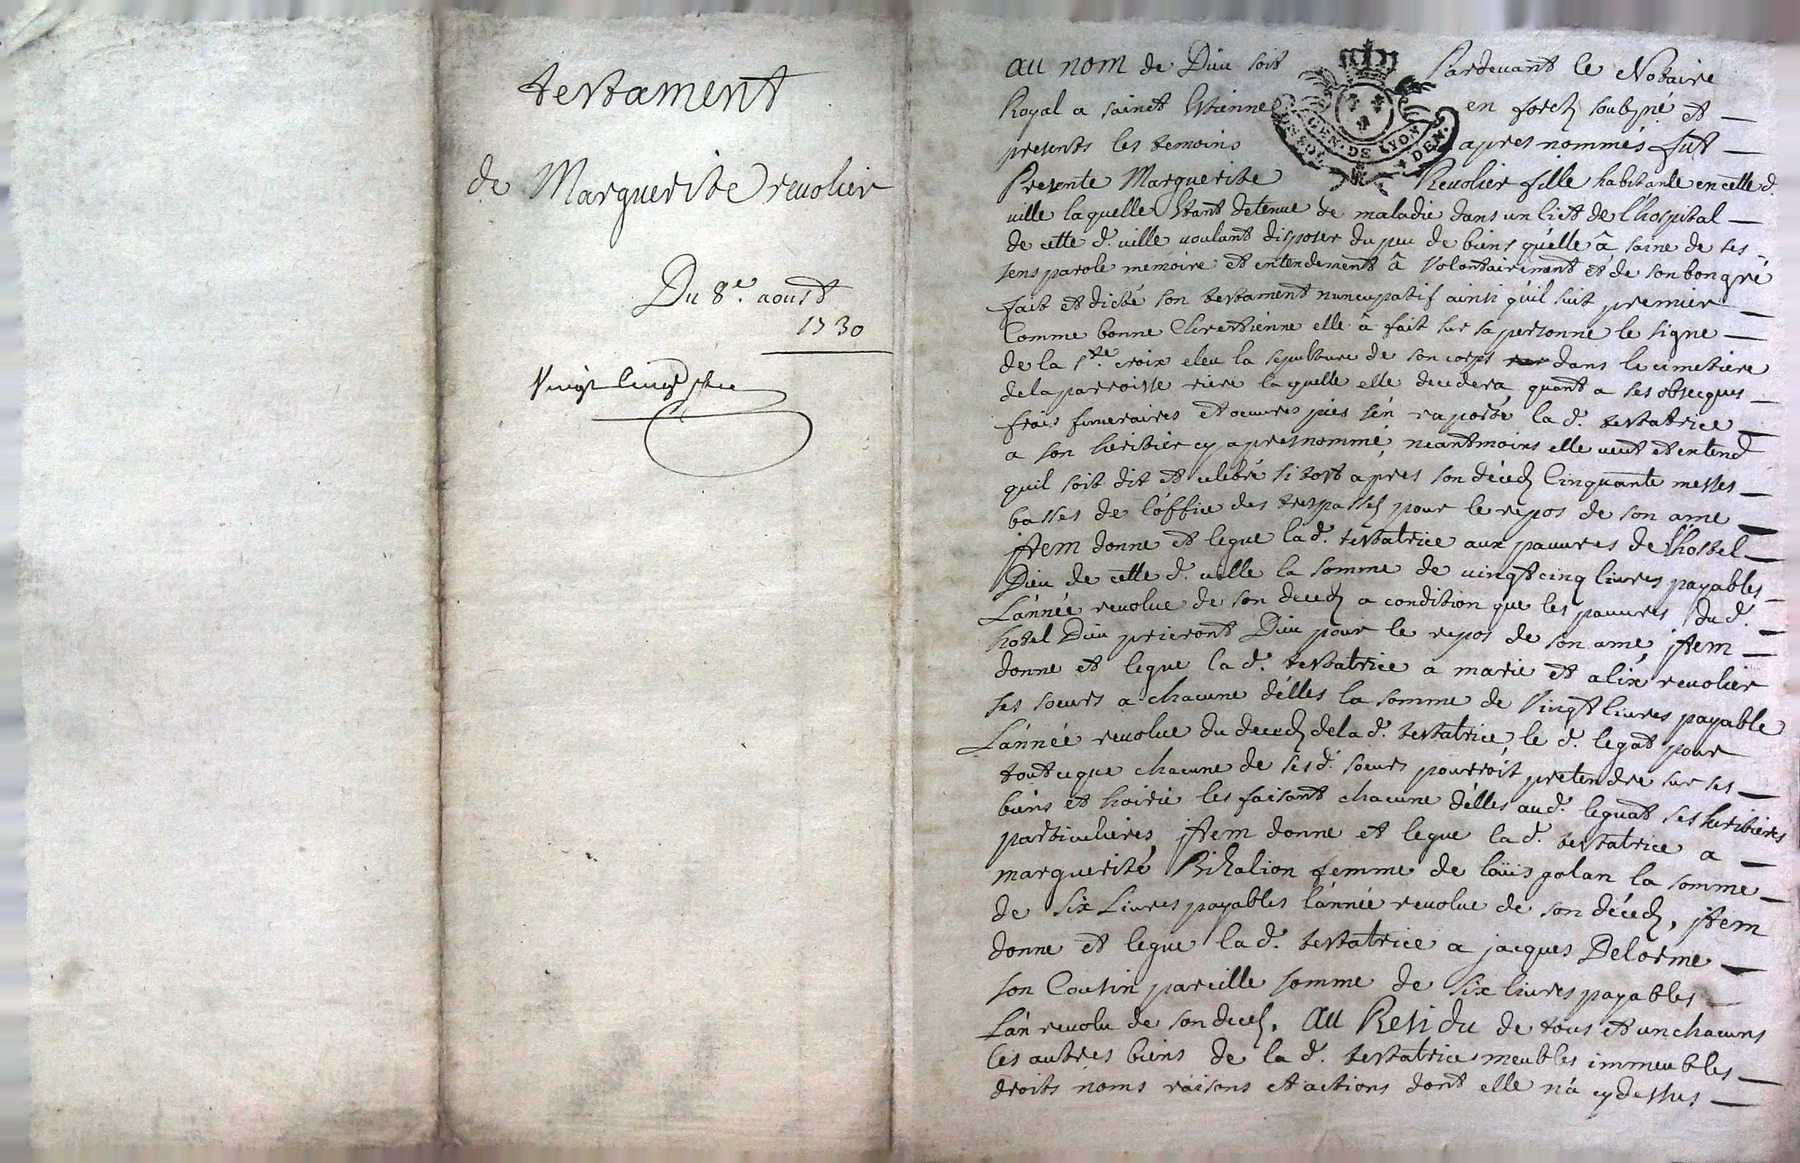 testament
de Marguerite revolier
Du 8e. aoust
1730
au nom de Dieu soit Pardevant le Notaire
Royal a sainct Estienne en forestz soubzné et
presents les temoins apres nommés fut
GEN. DE LYON
Presente Marguerite Revolier fille habitante en cette d.
ville laquelle Estant detenue de maladie dans un lict de l'hospital
de cette d. ville voulant disposer du peu de biens qu'elle â saine de ses
sens parole memoire et entendement â Volontairement et de son bon gré
fait et dicté son testament nuncupatif ainsi qu'il suit premier
Comme bonne Chrestienne elle â fait sur sa personne le signe
de la Ste. croix eleu la sepulture de son corps dans le cimetiere
de la parroisse riere laquelle elle decedera quant a ses obseques
frais funeraires et oeuvres pies s'en raporte la d. testatrice
a son heritier cy apres nommé, neantmoins elle veut et entend
quil soit dit et celebré si tost apres son décedz Cinquante messes
basses de l'office des trespassés pour le repos de son ame
jtem donne et legue la d. testatrice aux pauvres de l'hostel
Dieu de cette d. ville la somme de vingt cinq livres payables
L'année revolue de son decedz a condition que les pauvres du d.
hotel Dieu prieront Dieu pour le repos de son ame, jtem
donne et legue la d. testatrice a marie et alix revolier
ses soeurs a chacune d'elles la somme de Vingt livres payable
L'année revolue du decedz de la d. testatrice, le d. legat pour
tout ce que chacune de ses d. soeurs pourroit pretendre sur ses
biens et hoirie les faisant chacune d'elles au d. leguat ses heritieres
particulieres jtem donne et legue la d. testatrice a
marguerite femme de loüis galan la somme
de Six Livres payables l'année revolue de son décedz, jtem
donne et legue la d. testatrice a jacques Delorme
son Cousin pareille somme de Six livres payables
L'an revolu de son decedz. au Residu de tous et un chacuns
les autres biens de la d. testatrice meubles immeubles
droits noms raisons et actions dont elle n'a cy dessus